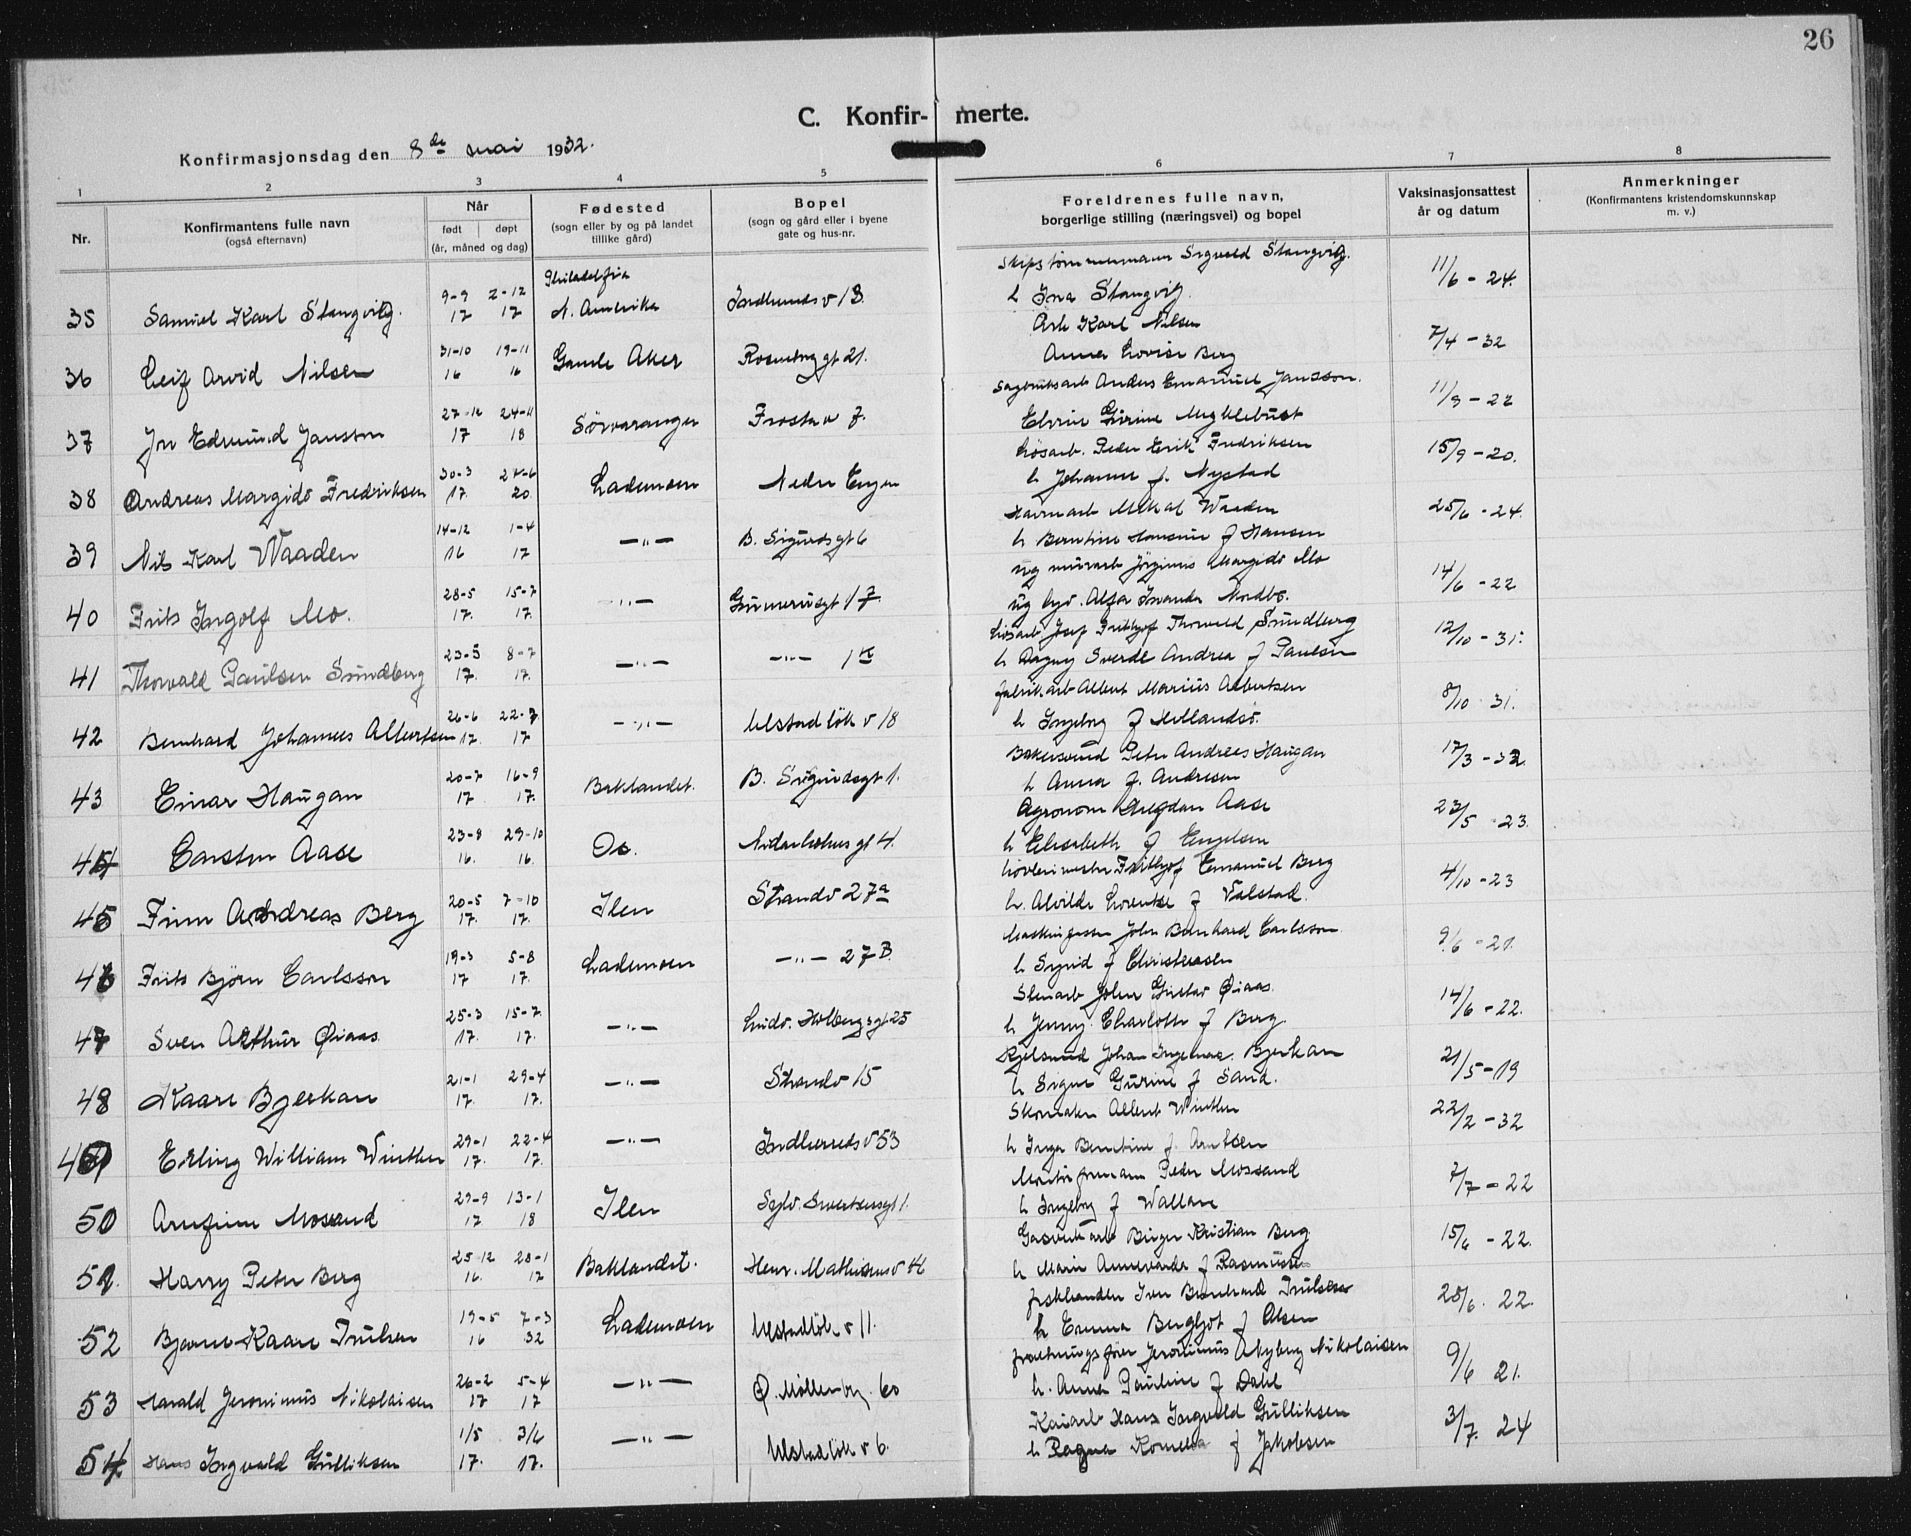 26
C. Konfir- merte.
Konfirmasjonsdag den 8de mai 1932.
1 2 3 4 5 6 7 8
Nr. Konfirmantens fulle navn (også efternavn) Når født døpt (år, måned og dag) Fødested (sogn eller by og på landet tillike gård) Bopel (sogn og gård eller i byene gate og hus-nr. Foreldrenes fulle navn, borgerlige stilling (næringsvei) og bopel Vaksinasjonsattest år og datum Anmerkninger (Konfirmantens kristendomskunnskap m. v.)
35 Samuel Karl Stangvig. 9-9 17 2-12 17 Philadelfia N. Amerika Indherreds v 13 Skipstømmermann Sigvald Stangvig. 11/6 - 24.
h Ina Stangvig.
36 Leif Arvid Nilsen 31-10 16 19-11 16 Gamle Aker Rosenborg gt 21. Arb Karl Nilsen 7/4 - 32
Anna Lovise Berg
37 Jon Edmund Jansson 27-12 17 24-11 18 Sörvaranger Frosta v 7. Sagbruksarb Anders Emanuel Jansson. 11/9 - 22
Myklebust
38 Andreas Margido Fredriksen 30-3 17 27-6 20 Lademoen Nedre Enger Løsarb. Peder Erik Fredriksen 15/9 - 20.
h Johanne f. Nystad
39 Nils Karl Waaden 14-12 16 1-4 17 —"— B. Sigurds gt 6 Havnearb Mikal Waaden 25/6 - 24.
h Berntine Hansine f Hansen
40 Frits Ingolf Mo. 28-5 17. 15-7 17. —"— Gunnerusgt 17. ug murarb Jørginus Margido Mo 14/6 - 22
41 Thorvald Paulsen Sundberg 23-5 17. 8-7 17. —"— —"— 1c Løsarb Josef Frithjof Thorvald Sundberg 12/10 - 31.
h Dagny Sverde Andrea f Paulsen
42 Bernhard Johannes Albertsen 26-6 17. 22-7 17 —"— Ulstadløk v 18 fabrik.arb Albert Marius Albertsen 8/10 31.
h Ingeborg f Hollandsø.
43 Einar Haugan 20-7 17 16-9 17. Baklandet. B. Sigurdsgt 1. Bakersvend Peter Andreas Haugan 17/3 - 32
h Anna f. Andresen
44 Carsten Aase 23-8 16. 29-10 16. Os. Nidarholms gt 4. Agronom Aase 23/5 - 23.
h Elisabeth f Engelsen
45 Finn Andreas Berg 20-5 17. 7-10 17. Ilen Strandv 27a Høvlerimester Frithjof Emanuel Berg 4/10 - 23
h. Alvilde Lorentse f Valstad.
46 Frits Bjørn Carlsson 19-3 17 5-8 17. Lademoen —"— 27 B. John Bernhard Carlsson 9/6 - 21.
h Sigrid f Christensen
47 Sven Arthur Øiaas 25-3 17. 15-7 17. —"— Ludv. Holbergs gt 25 Stenarb John Gustav Øiaas. 14/6 - 22.
h Jenny Charlotte f Berg.
48 Kaare Bjerkan 21-1 17. 29-4 17. —"— Strandv 15 Kjelsmed Johan Ingemar Bjerkan 21/5 - 19
h Signe Gurine f Sand.
49 Erling William Winther 29-1 17. 22-4 17. —"— Indherreds v 53 Skomaker Albert Winther 22/2 - 32
h Inga Berntine f. Arntsen
50 Arnfinn Mossand 29-9 17 13-1 18 Ilen Sylv. Sivertsens gt 1. Peder Mossand 7/7 - 22
h Ingeborg f Wallan
51. Harry Peter Berg 25-12 16. 28-1 17 Baklandet. Henr. Mathisens v 44 Gasverkarb Birger Kristian Berg 15/6 - 22.
h Marie f Rasmussen
52 Bjarne Kaare Trulsen 19-5 16 7-3 32 Lademoen Ulstadløk v 11. fiskhandler Iver Bernhard Trulsen 28/6. 22.
h Emma Bergljot f Olsen
53 Harald Jeronimus Nikolaisen 26-2 17 5-4 17 —"— Ø. Møllenbg. 60 forretningsfører Jeronimus Nyberg Nikolaisen 9/6 21.
h. Anna Pauline f Dahl
54 Hans Ingvald Gulliksen 1/5 17. 3/6 17. —"— Ulstadløk v 6. Kaiarb Hans Ingvald Gulliksen 3/7. 24
h Ragna Kornelia f Jakobsen